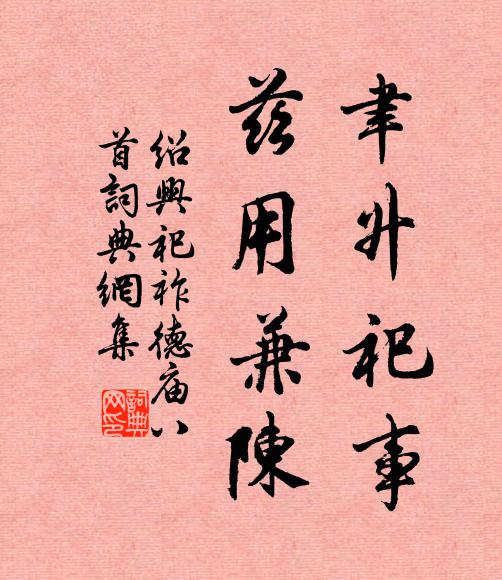 聿升祀事
茲用兼陳
紹興祀祚德庙八
首詞典網集
詞典
网印